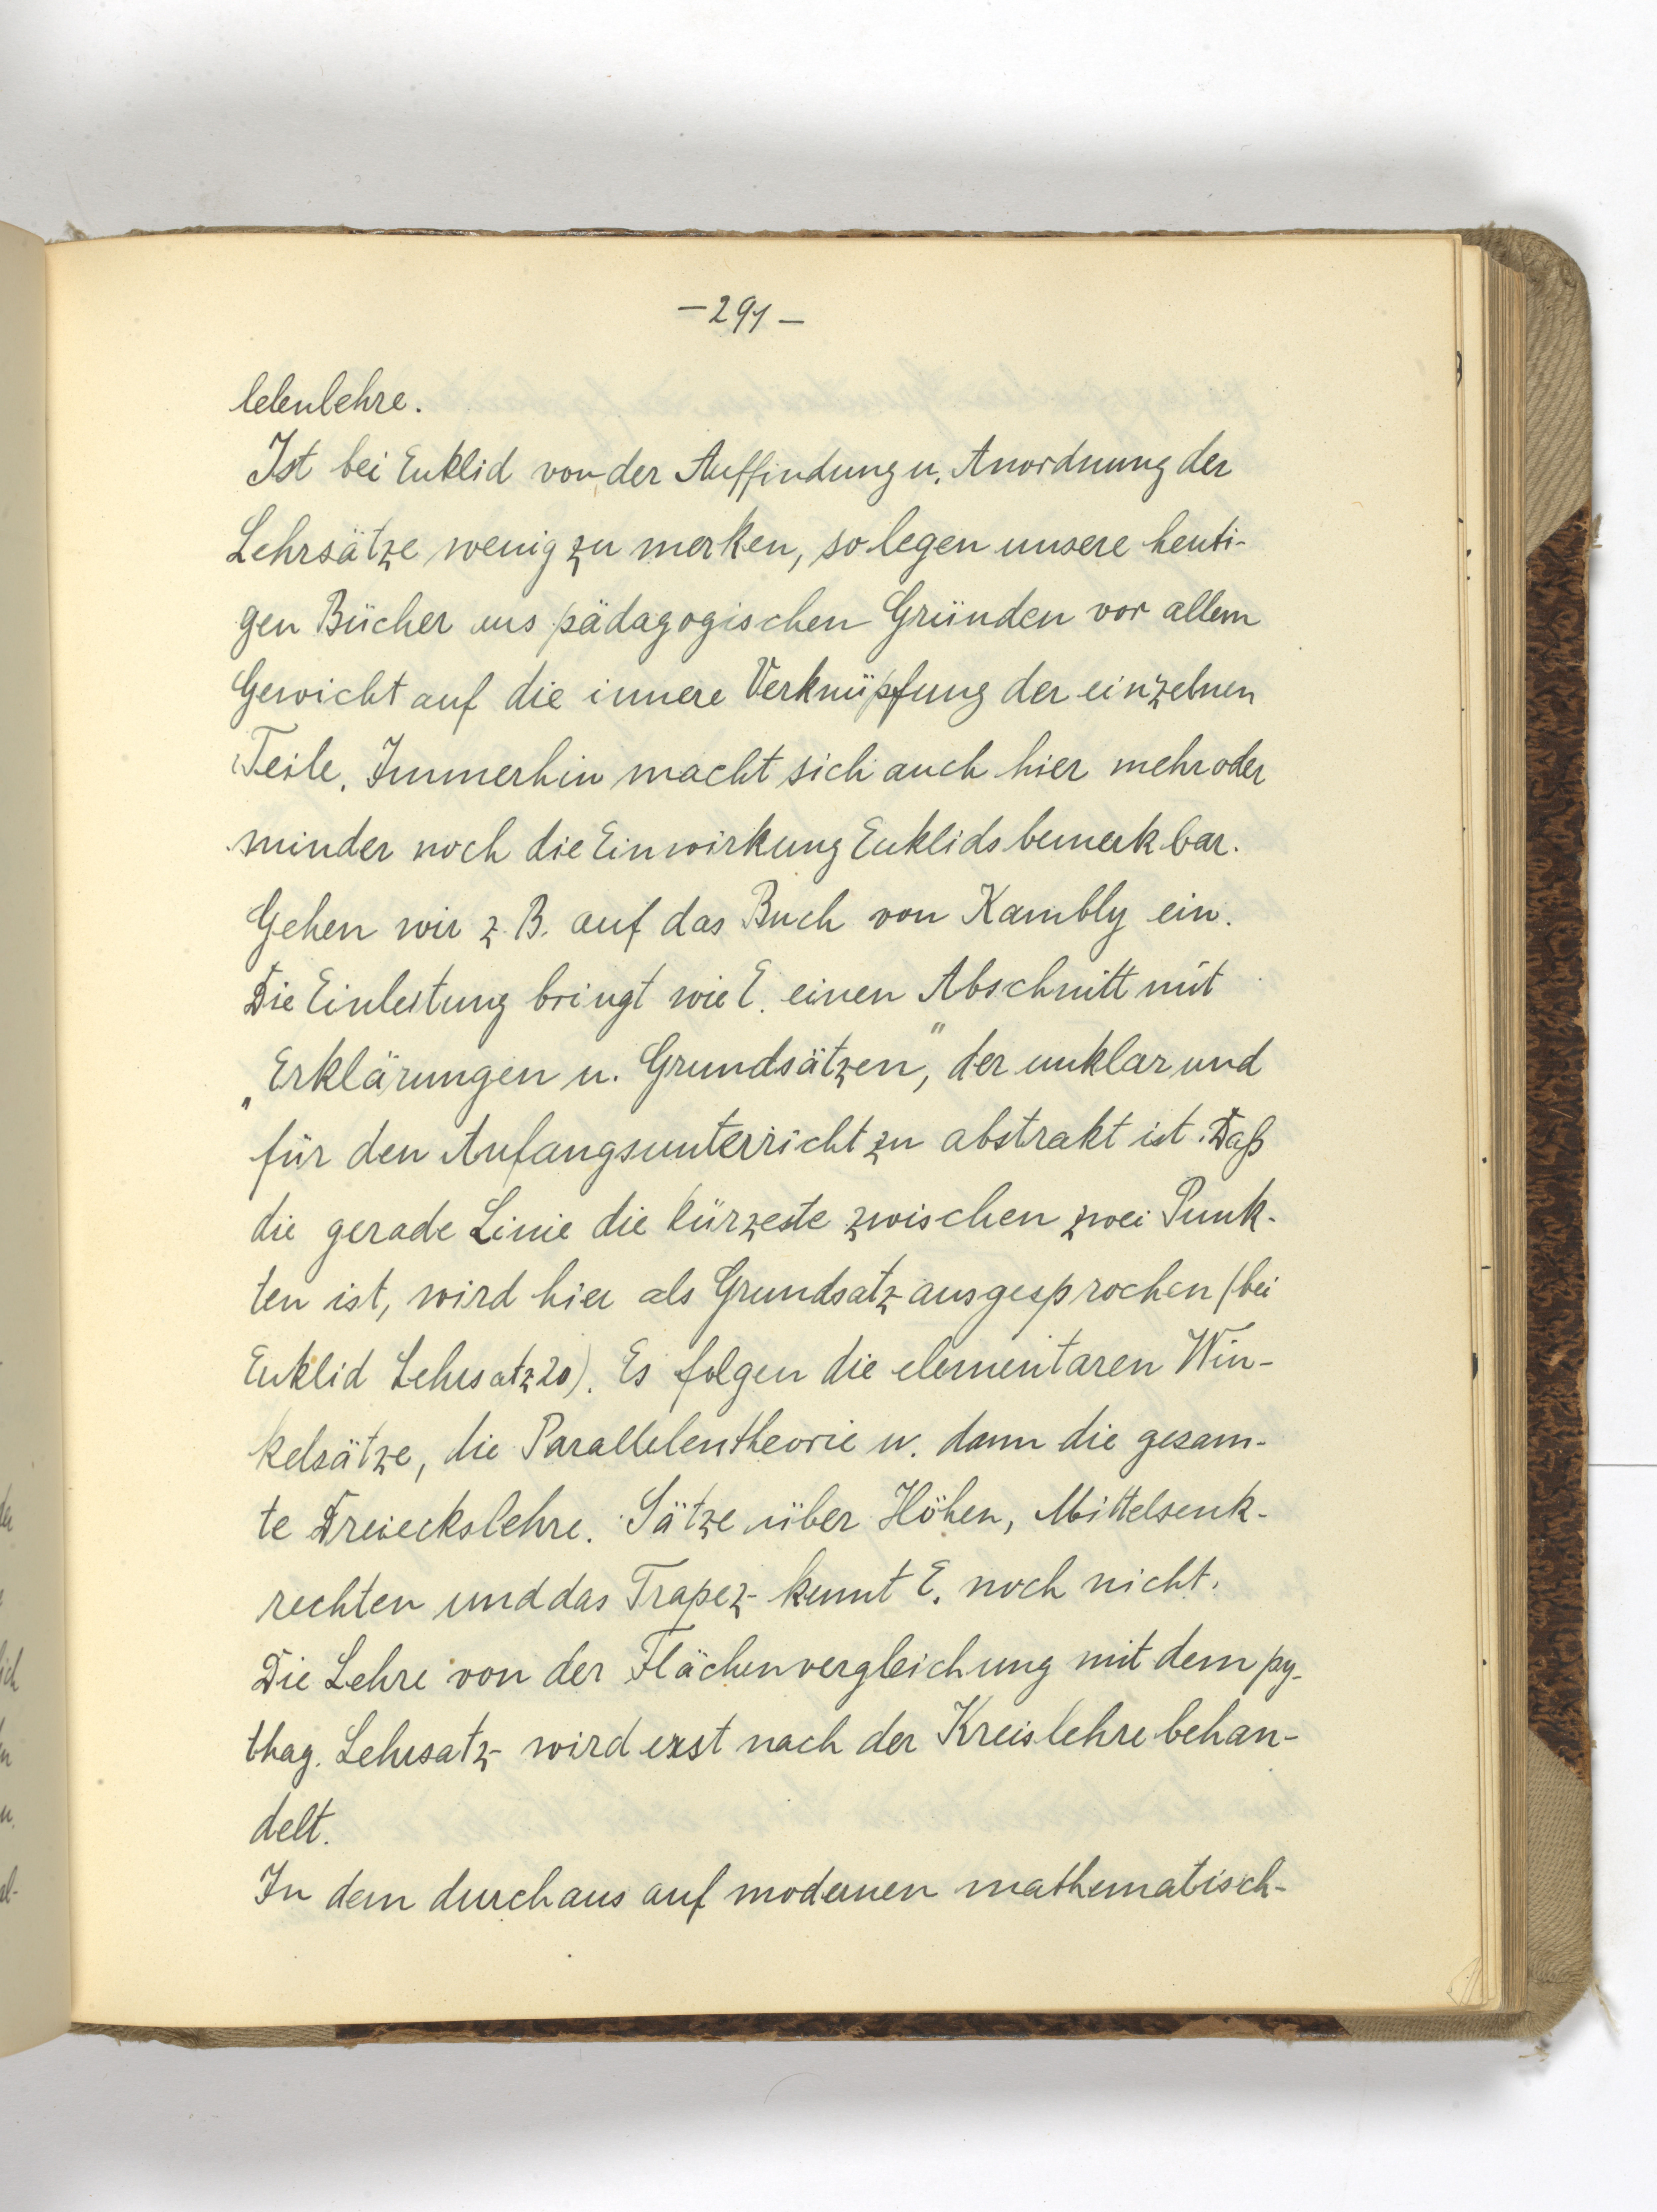 —291—
lelenlehre.
Ist bei Euklid von der Auffindung u. Anordnung der
Lehrsätze wenig zu merken, so legen unsere heuti-
gen Bücher aus pädagogischen Gründen vor allem
Gewicht auf die innere Verknüpfung der einzelnen
Teile. Immerhin macht sich auch hier mehr oder
minder noch die Einwirkung Euklids bemerkbar.
Gehen wir z. B. auf das Buch von Kambly ein.
Die Einleitung bringt wie E. einen Abschnitt mit
„Erklärungen u. Grundsätzen", der unklar und
für den Anfangsunterricht zu abstrakt ist. Daß
die gerade Linie die kürzeste zwischen zwei Punk-
ten ist, wird hier als Grundsatz ausgesprochen (bei
Euklid Lehrsatz 20). Es folgen die elementaren Win-
kelsätze, die Parallelentheorie u. dann die gesam-
te Dreieckslehre. Sätze über Höhen, Mittelsenk-
rechten und das Trapez kennt E. noch nicht.
Die Lehre von der Flächenvergleichung mit dem py-
thag. Lehrsatz wird erst nach der Kreislehre behan-
delt.
In dem durchaus auf modernen mathematisch-